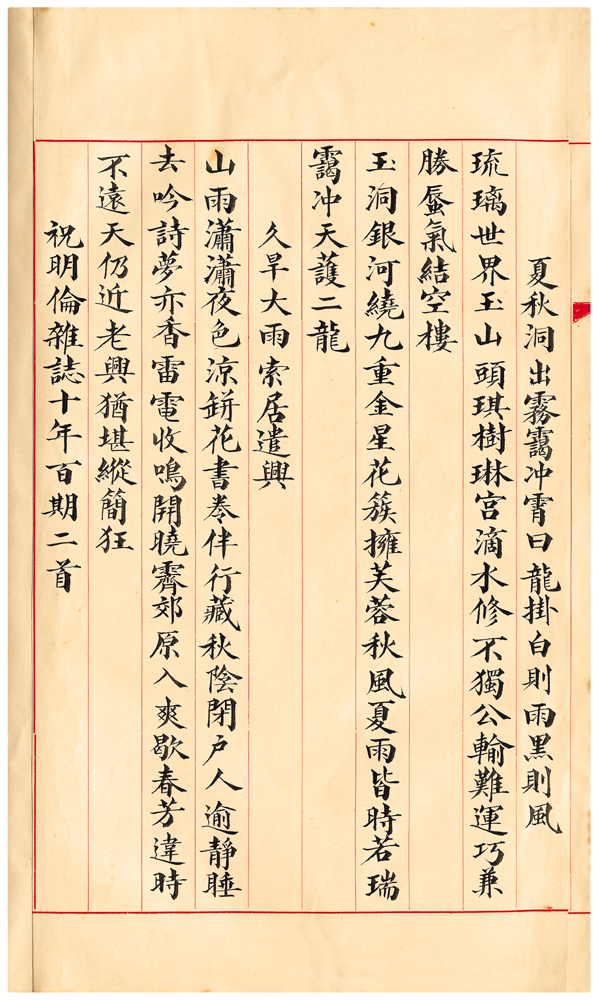 夏秋洞出霧靄冲霄曰龍掛白則雨黑則風
琉璃世界玉山頭琪樹琳宮滴水修不獨公輸難運巧兼
勝蜃氣結空樓
玉洞銀河繞九重金星花簇擁芙蓉秋風夏雨皆時若瑞
靄冲天護二龍
久旱大雨索居遣興
山雨瀟瀟夜色涼缾花書卷伴行藏秋陰閉户人逾靜睡
去吟詩夢亦香雷電收鳴開曉霽郊原入爽歇春芳違時
不遠天仍近老興猶堪縱簡狂
祝明倫雜誌十年百期二首